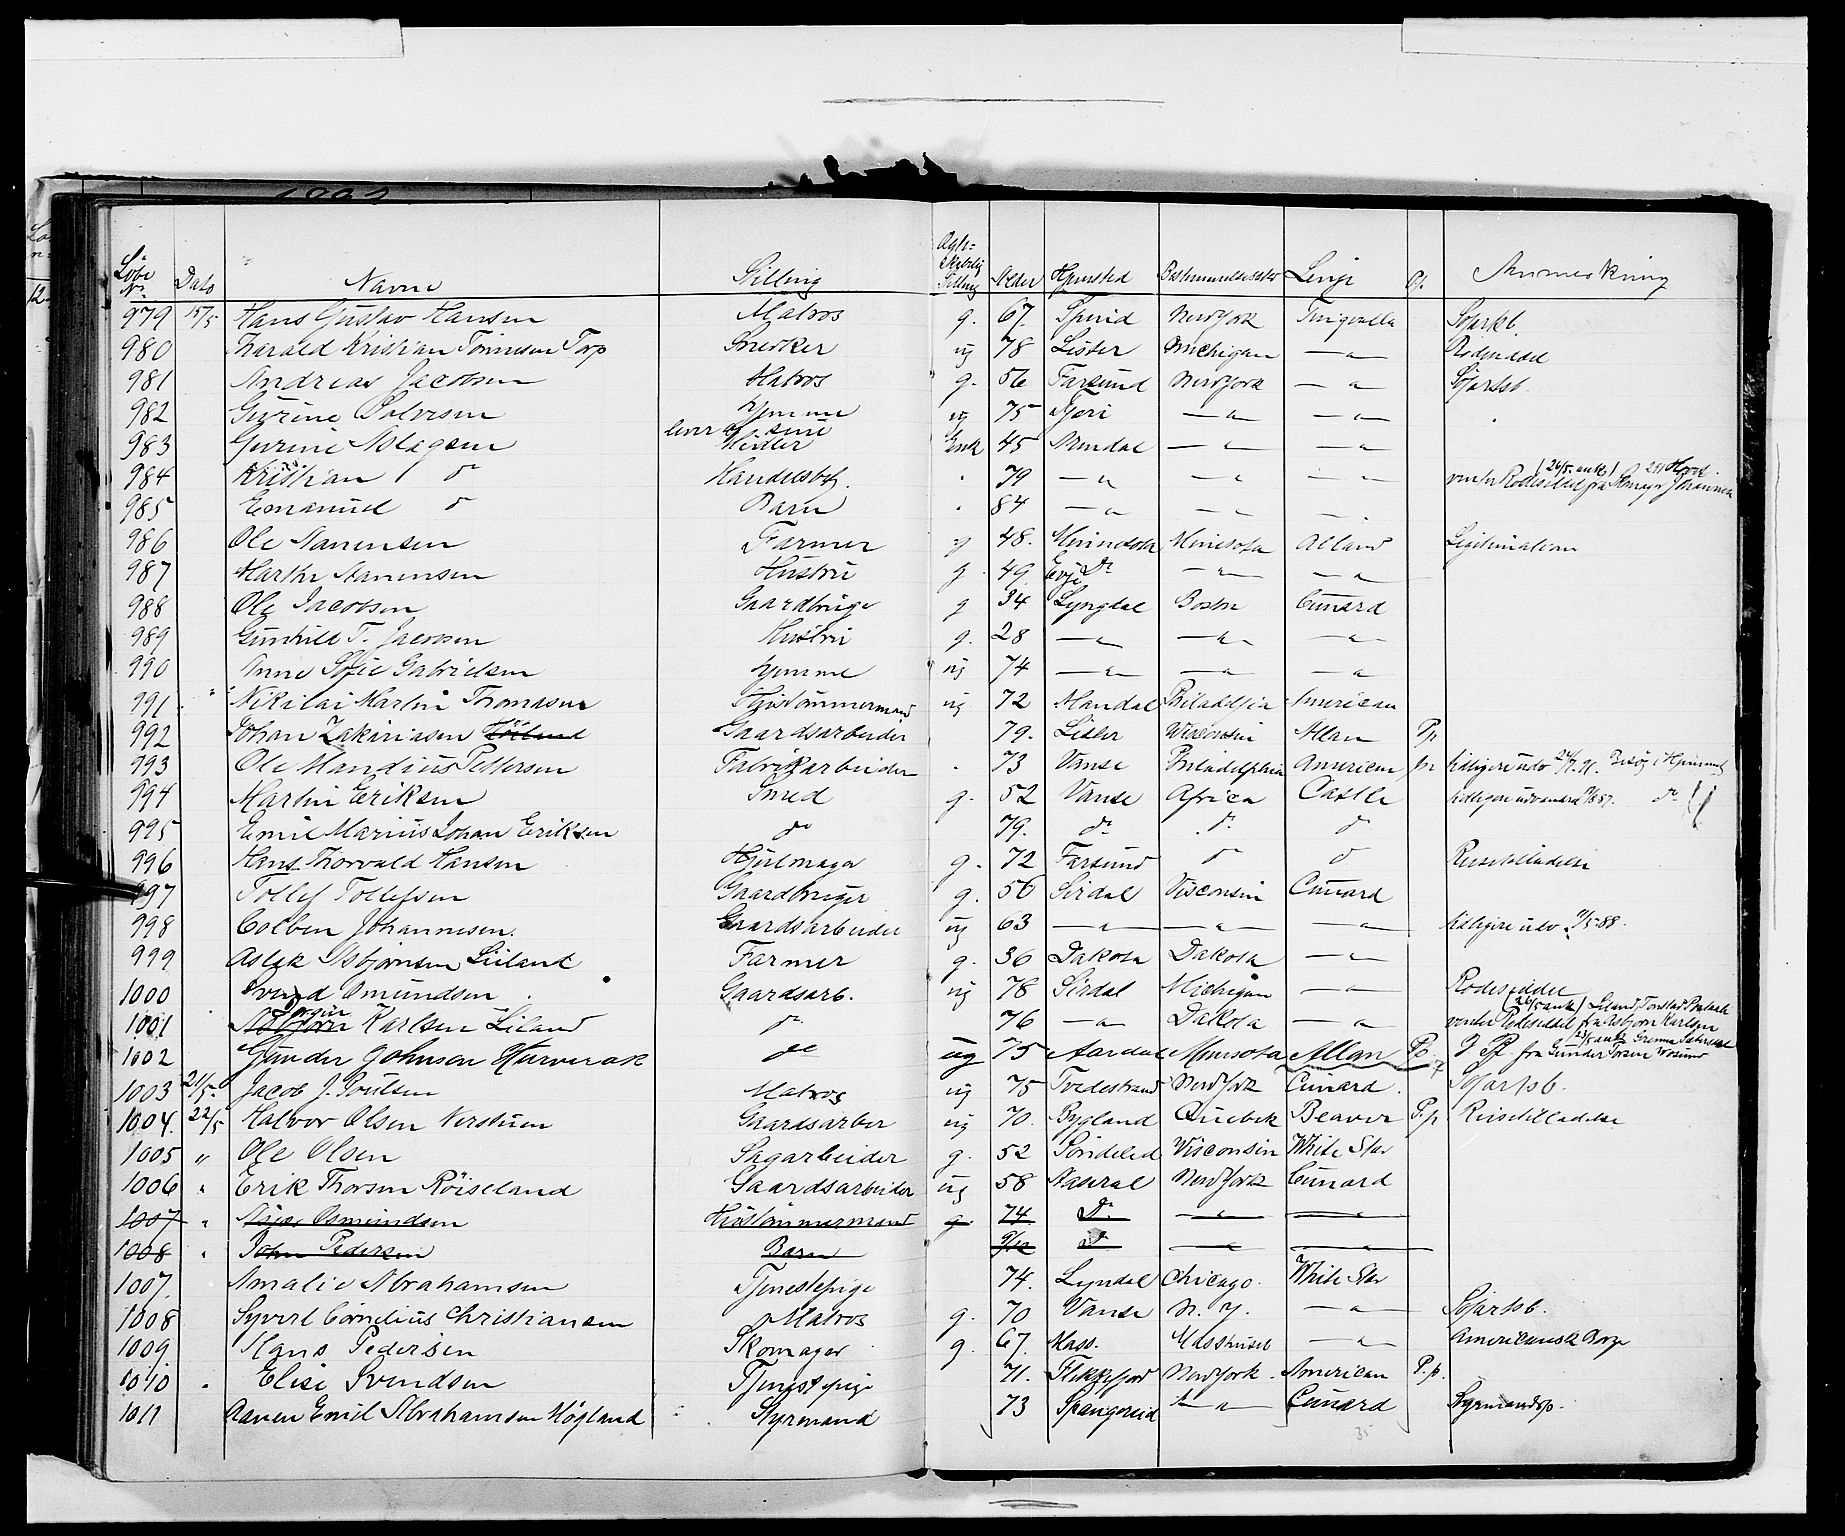 Løbe Nr. Dato Navne Stilling Ægteskabelig Stilling Alder Hjemsted Bestemmelsessted Linje Anmerkning
979 15/5 Hans Gustav Hansen Matros g. 67 Spind New York Tingvalla Søfartsb.
980 Harald Kristian Tønnesen Torp Snerker ug 78 Lister Michigan —"— Rodeseddel
981 Andreas Jacobsen Matros g. 56 Farsund New York —"— Søfartsb.
982 Gurine Salvesen hjemme ug 75 —"— —"—
983 Gurine Aslagsen lever af sine Midler Enk 45 Mandal —"— —"—
984 Kristian do Handelsbetj. 79 —"— —"— —"— venter Rodeseddel fra
985 Emanuel do Barn 84 —"— —"— —
986 Ole Aanensen Farmer g 48. Minnesota Minesota Alland Legitimation
987 Marthe Aanensen Hustru g 49 Evje Do —"— —"—
988 Ole Jacobsen Gaardbruge g 34 Lyngdal Boston Cunard
989 Gunhild T. Jacobsen Hustru g. 28 —"— —"— —"—
990 Anne Sofie Gabrielsen hjemme ug 74 —"— —"— —"—
991 " Nikolai Martin Thomasen Skibstømmermand ug 72 Mandal Philadelfia American
992 Johan Zakariasen Gaardsarbeider 79. Lister Wisconsin Allan Pp
993 Ole Mandius Pettersen Fabrikarbeider 73 Vanse Philadelphia American Pp tidligere udv 91. Besøg i Hjemmet
994 Martin Eriksen Smed g. 52 Vanse Africa Castle tidligere udvandret 87. do
995 Emil Marius Johan Eriksen do 79. do do do
996 Hans Thorvald Hansen Hjulmager g. 72 Farsund do do Reisetilladelse
997 Tollef Tollefsen Gaardbruger g. 56 Sirdal Visconsin Cunard
998 Colben Johannesen. Gaardsarbeider ug 63 —"— —"— —"— tidligere udv 88.
999 Aslak Asbjørnsen Liland Farmer g. 36 Dakota Dakota —"—
1000 Omundsen Gaardsarb. ug 78 Sirdal Michigan —"— Rodeseddel
1001 Karlsen Liland do 76 —"— Dakota —"— venter Rodeseddel fra Asbjørn Karlsen
1002 Gunder Johnsen do ug 75 Aardal Minesota Allan fra Gunder
1003 21/5 Jacob J. Poulsen Matros ug 75 Tvedestrand New York Cunard. Søfartsb.
1004. 22/5 Halvor Olsen Gaardsarber ug 70. Bygland Quebek Beaver P.p Reisetilladelse
1005 " Ole Olsen Sagarbeider g. 52 Søndeled Visconsin White Star
1006 " Erik Thorsen Røiseland Gaardsarbeider ug 58 New York Cunard
1007 " Osmundsen Hustømmermand g. 74 Do —"— —
1008 " John Pedersen Barn 9/12 Do — —
1007. Amalie Abrahamsen Tjenestepige 74. Lyndal Chicago. White Star
1008 Syvert Cornelius Christiansen Matros g. 70 Vanse N. Y. —"— Søfartsb.
1009 Hans Pedersen Skomager g. 67. Mass. —"— Americansk Borge
1010 " Elise Svendsen Tjenestepige 71. Flekkefjord New York. American P.p.
1011 Aanen Emil Abrahamsen Høgland Styrmand 73 Spangereid —"— Cunard Styrmandsp.
35